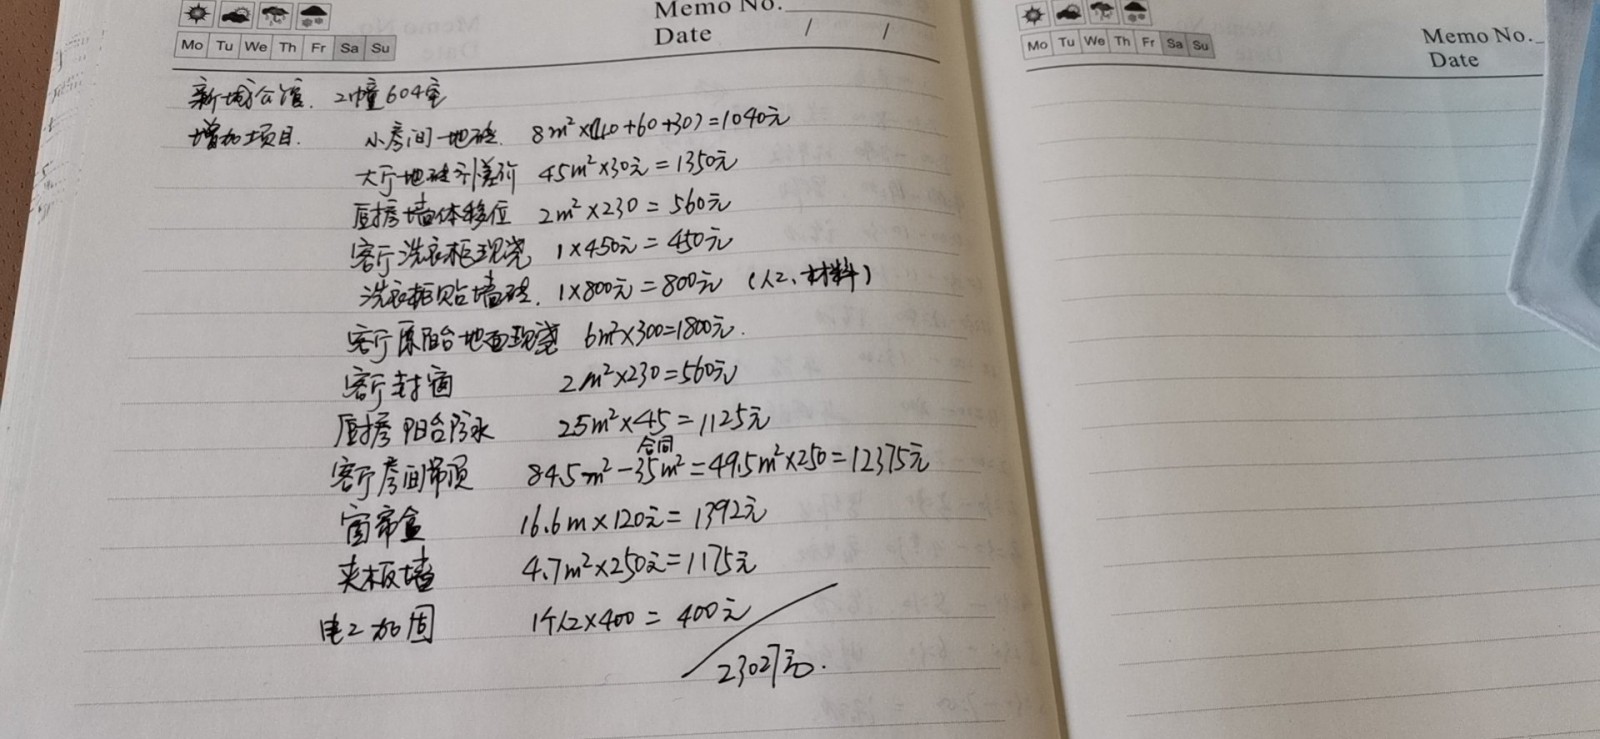 Memo No.
Mo Tu We Th Fr Sa Su
Date / /
新城公馆. 2幢604室
增加项目. 小房间地砖. 8m²×(40+60+30)=1040元
大厅地砖差价 45m²×30元=1350元
厨房墙体移位 2m²×230=560元
客厅洗衣柜现浇 1×450元=450元
洗衣柜贴墙砖. 1×800元=800元 (人工、材料)
客厅原阳台地面现浇 6m²×300=1800元.
客厅封窗 2m²×230=560元
厨房阳台防水 25m²×45=1125元
合同
客厅房间吊顶 84.5m²-35m²=49.5m²×250=12375元
窗帘盒 16.6m×120元=1392元
夹板墙 4.7m²×250元=1175元
电工加固 1个人工×400=400元
23027元.
Mo Tu We Th Fr Sa Su
Memo No.
Date